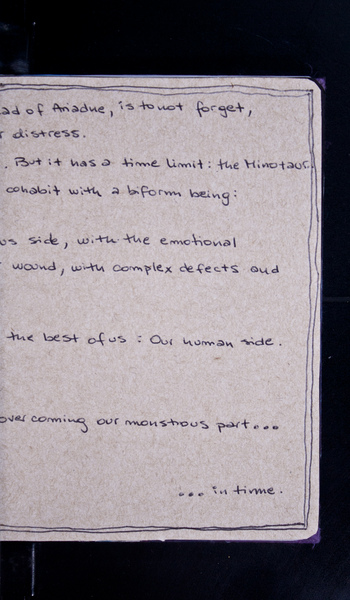 ad of Ariadne, is to not forget,
r distress.
. But it has a time limit: the Minotaur.
cohabit with a biform being:
us side, with the emotional
wound, with complex defects and
the best of us: Our human side.
overcoming our monstrous part...
... in time.